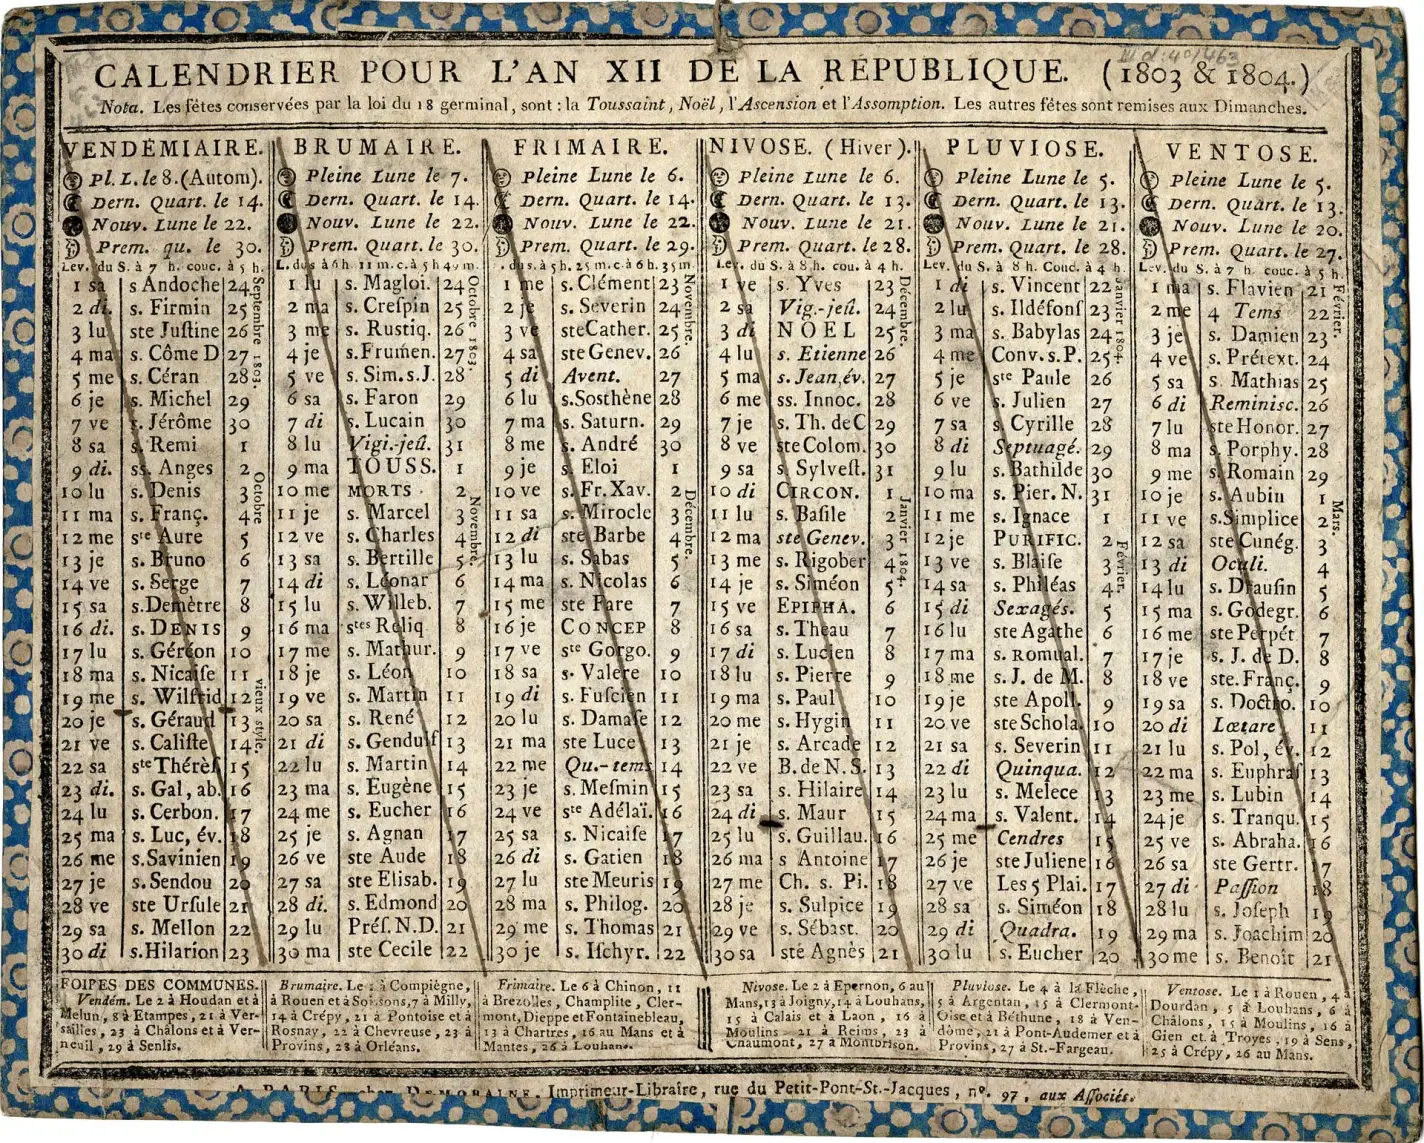 CALENDRIER POUR L'AN XII DE LA RÉPUBLIQUE. (1803 & 1804.)
Nota. Les fêtes conservées par la loi du 18 germinal, sont : la Toussaint, Noël, l'Ascension et l'Assomption. Les autres fêtes sont remises aux Dimanches.
VENDÉMIAIRE.
Pl. L. le 8. (Autom).
Dern. Quart. le 14.
Nouv. Lune le 22.
Prem. qu. le 30.
Lev. du S. à 7 h. couc. à 5 h.
1 sa s Andoche 24
2 di s. Firmin 25
3 lu ste Juſtine 26
4 ma s. Côme D 27
5 me s. Céran 28
6 je s. Michel 29
7 ve s. Jérôme 30
8 sa s. Remi 1
9 di. ss. Anges 2
10 lu s. Denis 3
11 ma s. Franç. 4
12 me ste Aure 5
13 je s. Bruno 6
14 ve s. Serge 7
15 sa s. Demètre 8
16 di. s. DENIS 9
17 lu s. Géréon 10
18 ma s. Nicaiſe 11
19 me s. Wilfrid 12
20 je s. Géraud 13
21 ve s. Caliſte 14
22 sa ste Thérèſ 15
23 di. s. Gal, ab. 16
24 lu s. Cerbon. 17
25 ma s. Luc, év. 18
26 me s. Savinien 19
27 je s. Sendou 20
28 ve ste Urſule 21
29 sa s. Mellon 22
30 di s. Hilarion 23
Septembre 1803.
Octobre
vieux style.
BRUMAIRE.
Pleine Lune le 7.
Dern. Quart. le 14.
Nouv. Lune le 22.
Prem. Quart. le 30.
L. du s à 6 h 11 m. c. à 5 h 49 m.
1 lu s. Magloi. 24
2 ma s. Creſpin 25
3 me s. Rustiq. 26
4 je s. Frumen. 27
5 ve s. Sim. s. J. 28
6 sa s. Faron 29
7 di s. Lucain 30
8 lu Vigi.-jeû. 31
9 ma TOUSS. 1
10 me MORTS 2
11 je s. Marcel 3
12 ve s. Charles 4
13 sa s. Bertille 5
14 di s. Léonar 6
15 lu s. Willeb. 7
16 ma stes Reliq 8
17 me s. Mathur. 9
18 je s. Léon 10
19 ve s. Martin 11
20 sa s. René 12
21 di s. Gendulf 13
22 lu s. Martin 14
23 ma s. Eugène 15
24 me s. Eucher 16
25 je s. Agnan 17
26 ve ste Aude 18
27 sa ste Elisab. 19
28 di. s. Edmond 20
29 lu Préſ. N.D. 21
30 ma ste Cecile 22
Octobre 1803.
Novembre.
FRIMAIRE.
Pleine Lune le 6.
Dern. Quart. le 14.
Nouv. Lune le 22.
Prem. Quart. le 29.
du s. à 5 h. 25 m. c. à 6 h. 35 m
1 me s. Clément 23
2 je s. Severin 24
3 ve ste Cather. 25
4 sa ste Genev. 26
5 di Avent. 27
6 lu s. Sosthène 28
7 ma s. Saturn. 29
8 me s. André 30
9 je s. Eloi 1
10 ve s. Fr. Xav. 2
11 sa s. Mirocle 3
12 di ste Barbe 4
13 lu s. Sabas 5
14 ma s. Nicolas 6
15 me ste Fare 7
16 je CONCEP 8
17 ve ste Gorgo. 9
18 sa s. Valere 10
19 di s. Fuſcien 11
20 lu s. Damaſe 12
21 ma ste Luce 13
22 me Qu.-tems 14
23 je s. Meſmin 15
24 ve ste Adélaï. 16
25 sa s. Nicaiſe 17
26 di s. Gatien 18
27 lu ste Meuris 19
28 ma s. Philog. 20
29 me s. Thomas 21
30 je s. Iſchyr. 22
Novembre.
Décembre.
NIVOSE. (Hiver).
Pleine Lune le 6.
Dern. Quart. le 13.
Nouv. Lune le 21.
Prem. Quart. le 28.
Lev. du S. à 8 h. cou. à 4 h.
1 ve s. Yves 23
2 sa Vig.-jeû. 24
3 di NOEL 25
4 lu s. Etienne 26
5 ma s. Jean, év. 27
6 me ss. Innoc. 28
7 je s. Th. de C 29
8 ve ste Colom. 30
9 sa s. Sylveſt. 31
10 di CIRCON. 1
11 lu s. Baſile 2
12 ma ste Genev. 3
13 me s. Rigober 4
14 je s. Siméon 5
15 ve EPIPHA. 6
16 sa s. Théau 7
17 di s. Lucien 8
18 lu s. Pierre 9
19 ma s. Paul 10
20 me s. Hygin 11
21 je s. Arcade 12
22 ve B. de N. S. 13
23 sa s. Hilaire 14
24 di s. Maur 15
25 lu s. Guillau. 16
26 ma s Antoine 17
27 me Ch. s. Pi. 18
28 je s. Sulpice 19
29 ve s. Sébast. 20
30 sa ste Agnès 21
Décembre.
Janvier 1804.
PLUVIOSE.
Pleine Lune le 5.
Dern. Quart. le 13.
Nouv. Lune le 21.
Prem. Quart. le 28.
Lev. du S. à 8 h. Couc. à 4 h.
1 di s. Vincent 22
2 lu s. Ildéfonſ 23
3 ma s. Babylas 24
4 me Conv. s. P. 25
5 je ste Paule 26
6 ve s. Julien 27
7 sa s. Cyrille 28
8 di Septuagé. 29
9 lu s. Bathilde 30
10 ma s. Pier. N. 31
11 me s. Ignace 1
12 je PURIFIC. 2
13 ve s. Blaiſe 3
14 sa s. Philéas 4
15 di Sexagés. 5
16 lu ste Agathe 6
17 ma s. Romual. 7
18 me s. J. de M. 8
19 je ste Apoll. 9
20 ve ste Schola. 10
21 sa s. Severin 11
22 di Quinqua. 12
23 lu s. Melece 13
24 ma s. Valent. 14
25 me Cendres 15
26 je ste Juliene 16
27 ve Les 5 Plai. 17
28 sa s. Siméon 18
29 di Quadra. 19
30 lu s. Eucher 20
Janvier 1804
Février.
VENTOSE.
Pleine Lune le 5.
Dern. Quart. le 13.
Nouv. Lune le 20.
Prem. Quart. le 27.
Lev. du S. à 7 h. couc. à 5 h.
1 ma s. Flavien 21
2 me 4 Tems 22
3 je s. Damien 23
4 ve s. Prétext. 24
5 sa s. Mathias 25
6 di Reminisc. 26
7 lu ste Honor. 27
8 ma s. Porphy. 28
9 me s. Romain 29
10 je s. Aubin 1
11 ve s. Simplice 2
12 sa ste Cunég. 3
13 di Oculi. 4
14 lu s. Drauſin 5
15 ma s. Godegr. 6
16 me ste Perpét 7
17 je s. J. de D. 8
18 ve ste. Franç. 9
19 sa s. Doctro. 10
20 di Lætare 11
21 lu s. Pol, év. 12
22 ma s. Euphraſ 13
23 me s. Lubin 14
24 je s. Tranqu. 15
25 ve s. Abraha. 16
26 sa ste Gertr. 17
27 di Paſſion 18
28 lu s. Joſeph 19
29 ma s. Joachim 20
30 me s. Benoît 21
Février.
Mars.
FOIRES DES COMMUNES.
Vendém. Le 2 à Houdan et à
Melun, 8 à Etampes, 21 à Ver-
sailles, 23 à Châlons et à Ver-
neuil, 29 à Senlis.
Brumaire. Le 2 à Compiègne,
à Rouen et à Soissons, 7 à Milly,
14 à Crépy, 21 à Pontoise et à
Rosnay, 22 à Chevreuse, 23 à
Provins, 28 à Orléans.
Frimaire. Le 6 à Chinon, 11
à Brezolles, Champlite, Cler-
mont, Dieppe et Fontainebleau,
13 à Chartres, 16 au Mans et à
Mantes, 26 à Louhans.
Nivose. Le 2 à Epernon, 6 au
Mans, 13 à Joigny, 14 à Louhans,
15 à Calais et à Laon, 16 à
Moulins 21 à Reims, 23 à
Chaumont, 27 à Montbrison.
Pluviose. Le 4 à la Flèche,
5 à Argentan, 15 à Clermont-
Oise et à Béthune, 18 à Ven-
dôme, 21 à Pont-Audemer et à
Provins, 27 à St.-Fargeau.
Ventose. Le 1 à Rouen, 4 à
Dourdan, 5 à Louhans, 6 à
Châlons, 15 à Moulins, 16 à
Gien et à Troyes, 19 à Sens,
25 à Crépy, 26 au Mans.
A PARIS chez DEMORAINE, Imprimeur-Libraire, rue du Petit-Pont-St.-Jacques, n°. 97, aux Aſſociés.